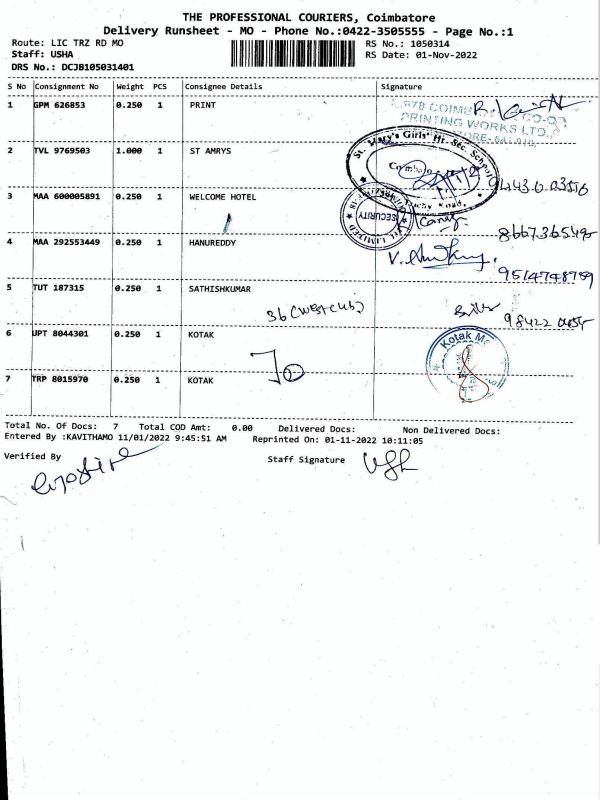 THE PROFESSIONAL COURIERS, Coimbatore
Delivery Runsheet - MO - Phone No.:0422-3505555 - Page No.:1
Route: LIC TRZ RD MO
RS No.: 1050314
Staff: USHA
RS Date: 01-Nov-2022
DRS No.: DCJB105031401
S No Consignment No Weight PCS Consignee Details Signature
1 GPM 626853 0.250 1 PRINT
PRINTING WORKS LTD.,
2 TVL 9769503 1.000 1 ST AMRYS
St. Mary's Girls' Hr. Sec. School
3 MAA 600005891 0.250 1 WELCOME HOTEL
SECURITY
4 MAA 292553449 0.250 1 HANUREDDY
9514748759
5 TUT 187315 0.250 1 SATHISHKUMAR
36 (West Club)
6 JPT 8044301 0.250 1 KOTAK
Kotak
7 TRP 8015970 0.250 1 KOTAK
Total No. Of Docs: 7 Total COD Amt: 0.00 Delivered Docs: Non Delivered Docs:
Entered By :KAVITHAMO 11/01/2022 9:45:51 AM Reprinted On: 01-11-2022 10:11:05
Verified By Staff Signature